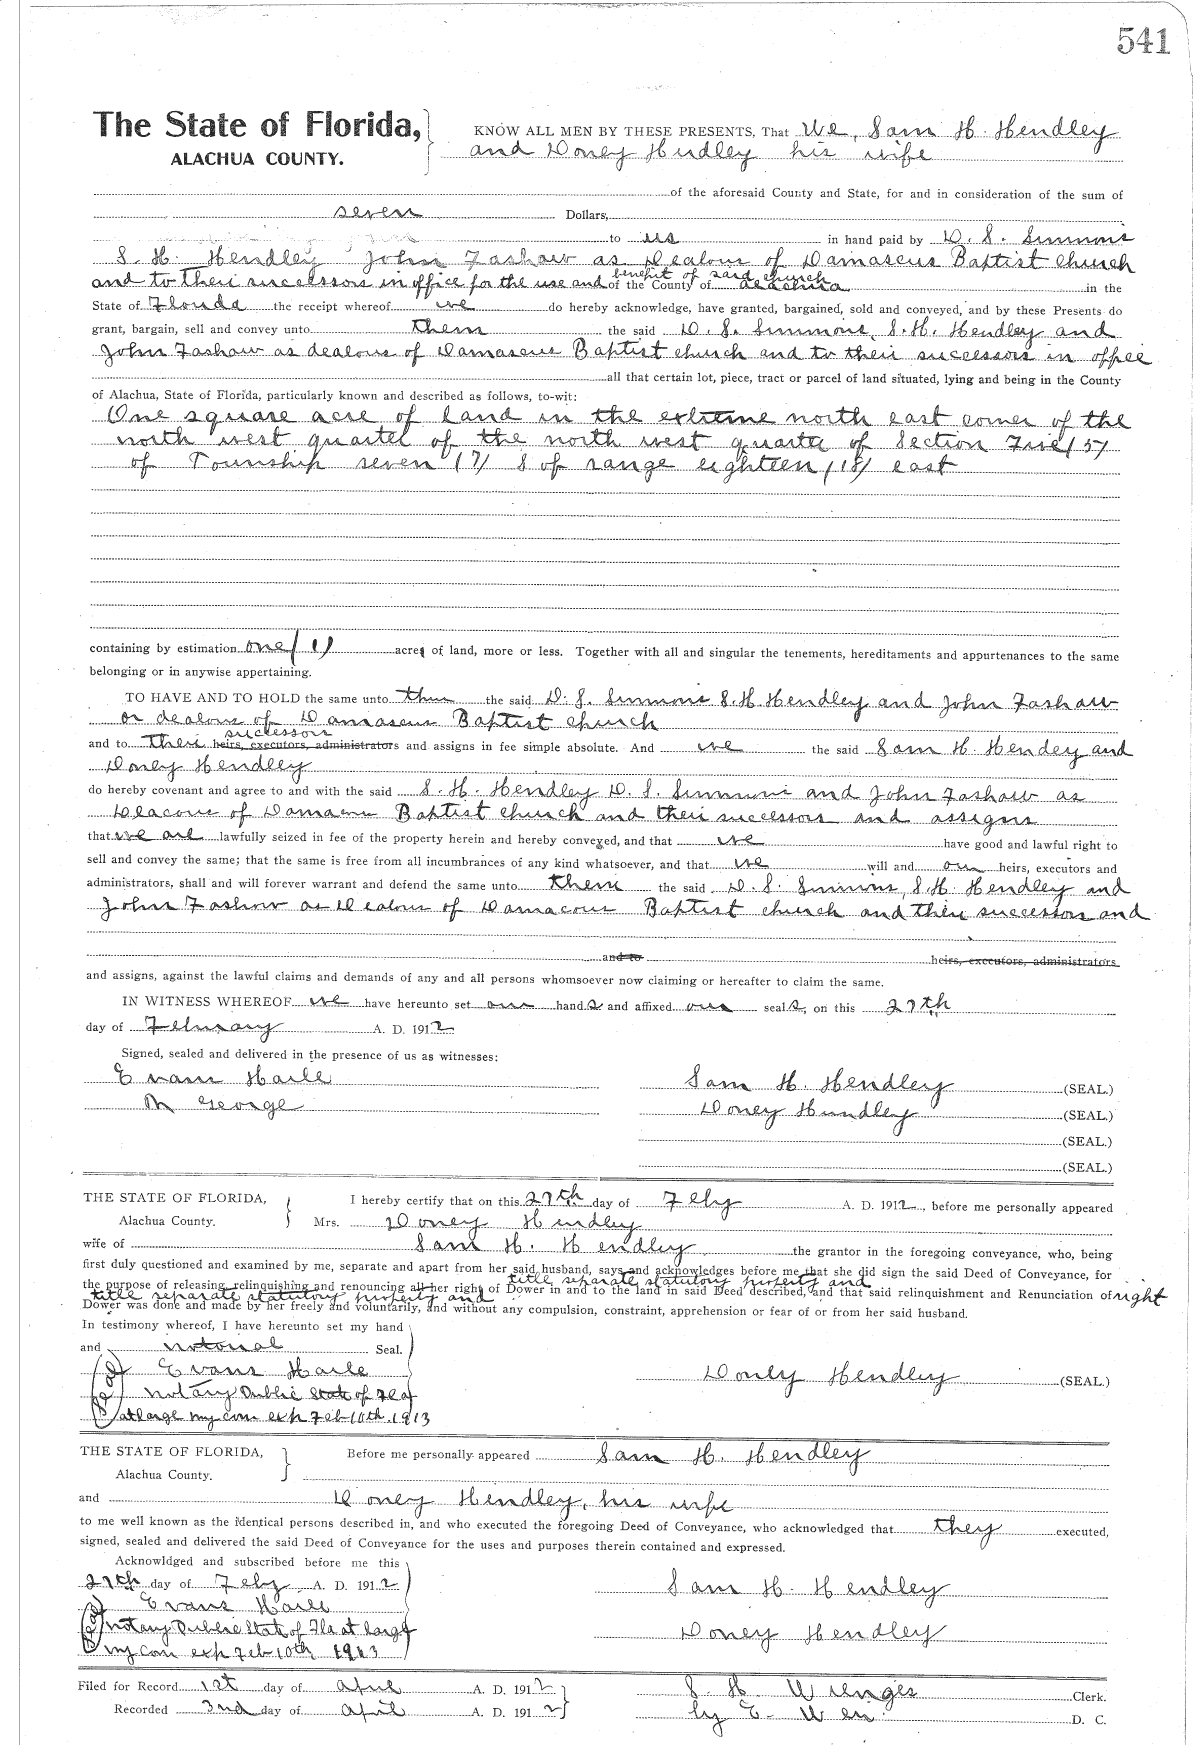 541
The State of Florida, KNOW ALL MEN BY THESE PRESENTS, That We, Sam H. Hendley
ALACHUA COUNTY. and Doney Hendley his wife
of the aforesaid County and State, for and in consideration of the sum of
seven Dollars,
to us in hand paid by D. S. Simmons
S. H. Hendley John Fashaw as Deacons of Damascus Baptist church
benefit of said church
and to their successors in office for the use and of the County of Alachua in the
State of Florida the receipt whereof we do hereby acknowledge, have granted, bargained, sold and conveyed, and by these Presents do
grant, bargain, sell and convey unto them the said D. S. Simmons, S. H. Hendley and
John Fashaw as deacons of Damascus Baptist church and to their successors in office
all that certain lot, piece, tract or parcel of land situated, lying and being in the County
of Alachua, State of Florida, particularly known and described as follows, to-wit:
One square acre of land in the extreme north east corner of the
north west quarter of the north west quarter of Section Five (5)
of Township seven (7) S of range eighteen (18) east
containing by estimation one (1) acre of land, more or less. Together with all and singular the tenements, hereditaments and appurtenances to the same
belonging or in anywise appertaining.
TO HAVE AND TO HOLD the same unto them the said D. S. Simmons S. H Hendley and John Fashaw
or deacons of Damascus Baptist church
successors
and to their heirs, executors, administrators and assigns in fee simple absolute. And we the said Sam H. Hendey and
Doney Hendley
do hereby covenant and agree to and with the said S. H. Hendley D. S. Simmons and John Fashaw as
Deacons of Damascus Baptist church and their successors and assigns
that we are lawfully seized in fee of the property herein and hereby conveyed, and that we have good and lawful right to
sell and convey the same; that the same is free from all incumbrances of any kind whatsoever, and that we will and our heirs, executors and
administrators, shall and will forever warrant and defend the same unto them the said D. S. Simmons, S. H. Hendley and
John Fashaw as Deacons of Damacous Baptist church and their successors and
and to heirs, executors, administrators
and assigns, against the lawful claims and demands of any and all persons whomsoever now claiming or hereafter to claim the same.
IN WITNESS WHEREOF we have hereunto set our hands and affixed our seals, on this 27th
day of February A. D. 1912
Signed, sealed and delivered in the presence of us as witnesses:
Evans Haile Sam H. Hendley (SEAL.)
M George Doney Hendley (SEAL.)
(SEAL.)
(SEAL.)
THE STATE OF FLORIDA, I hereby certify that on this 27th day of Feby A. D. 1912, before me personally appeared
Alachua County. Mrs. Doney Hendley
wife of Sam H. Hendley the grantor in the foregoing conveyance, who, being
first duly questioned and examined by me, separate and apart from her said husband, says and acknowledges before me that she did sign the said Deed of Conveyance, for
title separate statutory property and
the purpose of releasing, relinquishing and renouncing all her right of Dower in and to the land in said Deed described, and that said relinquishment and Renunciation of right
title separate statutory property and
Dower was done and made by her freely and voluntarily, and without any compulsion, constraint, apprehension or fear of or from her said husband.
In testimony whereof, I have hereunto set my hand
and notorial Seal.
Evans Haile Doney Hendley (SEAL.)
notary Public State of Fla
at large my com exp Feb 10th 1913
THE STATE OF FLORIDA, Before me personally appeared Sam H. Hendley
Alachua County.
and Doney Hendley, his wife
to me well known as the identical persons described in, and who executed the foregoing Deed of Conveyance, who acknowledged that they executed,
signed, sealed and delivered the said Deed of Conveyance for the uses and purposes therein contained and expressed.
Acknowldged and subscribed before me this
27th day of Feby, A. D. 1912 Sam H. Hendley
Evans Haile
notary Public State of Fla at large Doney Hendley
my com exp Feb 10th 1913
Filed for Record 1st day of April A. D. 1912 S. H. Wienges Clerk.
Recorded 2nd day of April A. D. 1912 by E. Wien D. C.